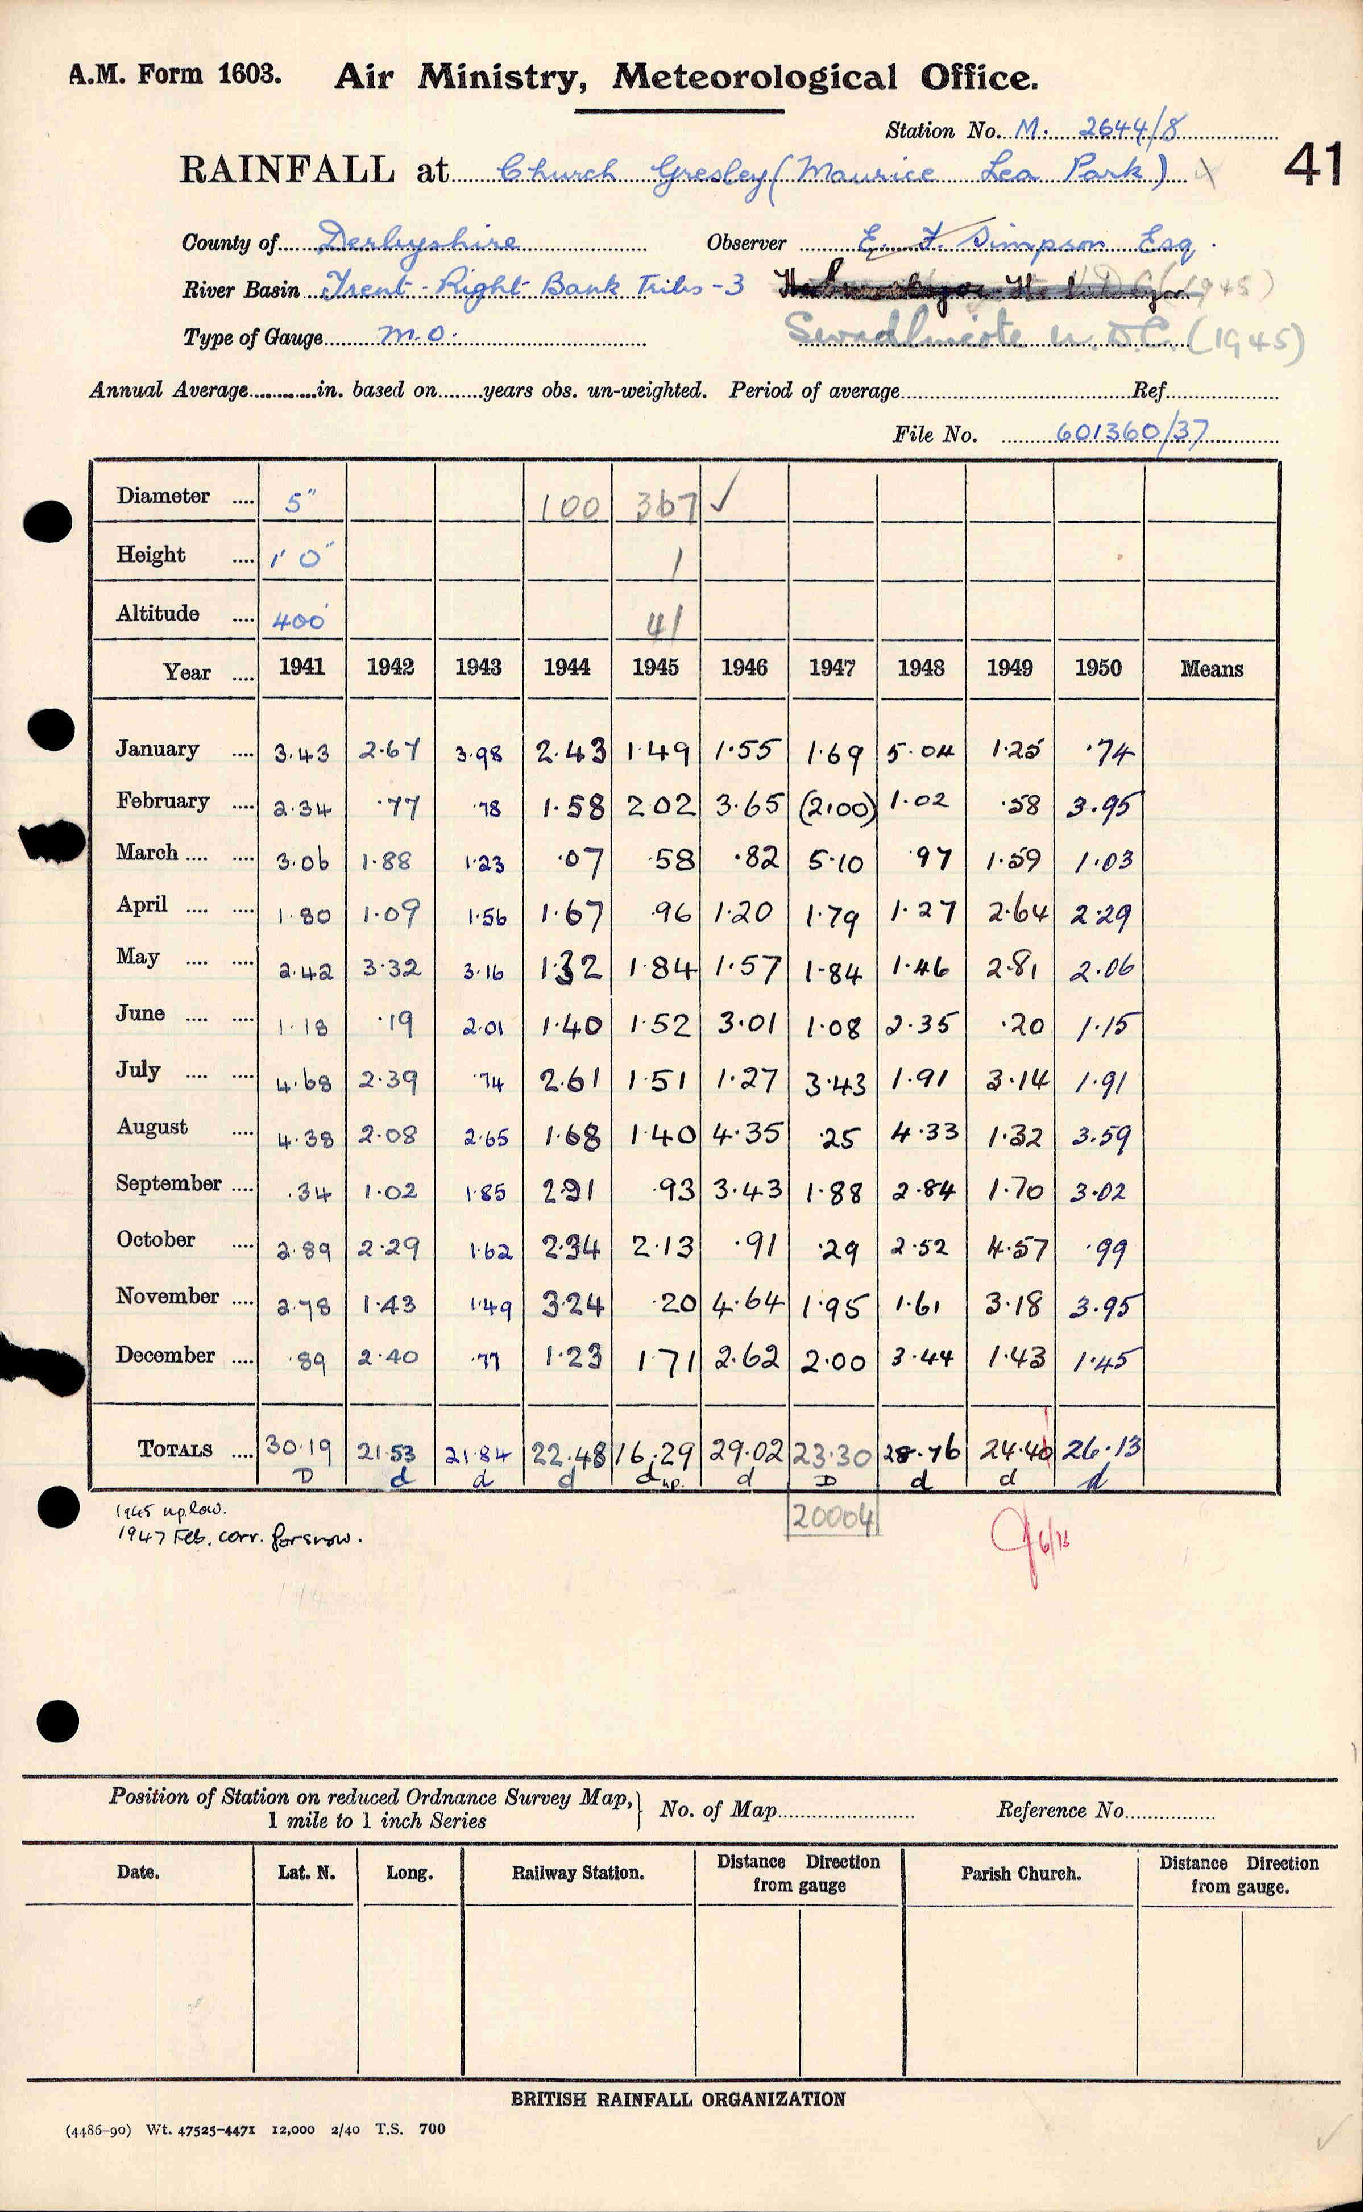 A.M. Form 1603. Air Ministry, Meteorological Office.
Station No. M. 2644/8
RAINFALL at Church Gresley (Maurice Lea Park) 41
County of Derbyshire Observer E. F. Simpson Esq.
River Basin Trent - Right Bank Tribs - 3
Type of Gauge M.O. Swadlincote U.D.C. (1945)
Annual Average in. based on years obs. un-weighted. Period of average Ref.
File No. 601360/37
Diameter 5" 100 367 ✓
Height 1' 0" 1
Altitude 400' 41
Year 1941 1942 1943 1944 1945 1946 1947 1948 1949 1950 Means
January 3.43 2.67 3.98 2.43 1.49 1.55 1.69 5.04 1.25 .74
February 2.34 .77 .78 1.58 2.02 3.65 (2.00) 1.02 .58 3.95
March 3.06 1.88 1.23 .07 .58 .82 5.10 .97 1.59 1.03
April 1.80 1.09 1.56 1.67 .96 1.20 1.79 1.27 2.64 2.29
May 2.42 3.32 3.16 1.32 1.84 1.57 1.84 1.46 2.81 2.06
June 1.18 .19 2.01 1.40 1.52 3.01 1.08 2.35 .20 1.15
July 4.68 2.39 .74 2.61 1.51 1.27 3.43 1.91 3.14 1.91
August 4.38 2.08 2.65 1.68 1.40 4.35 .25 4.33 1.32 3.59
September .34 1.02 1.85 2.91 .93 3.43 1.88 2.84 1.70 3.02
October 2.89 2.29 1.62 2.34 2.13 .91 .29 2.52 4.57 .99
November 2.78 1.43 1.49 3.24 .20 4.64 1.95 1.61 3.18 3.95
December .89 2.40 .77 1.23 1.71 2.62 2.00 3.44 1.43 1.45
TOTALS 30.19 21.53 21.84 22.48 16.29 29.02 23.30 28.76 24.40 26.13
D d d d d up. d D d d d
1945 up low. 20004
1947 Feb. corr. for snow.
Position of Station on reduced Ordnance Survey Map, No. of Map Reference No.
1 mile to 1 inch Series
Date. Lat. N. Long. Railway Station. Distance Direction from gauge Parish Church. Distance Direction from gauge.
BRITISH RAINFALL ORGANIZATION
(4486-90) Wt. 47525-4471 12,000 2/40 T.S. 700